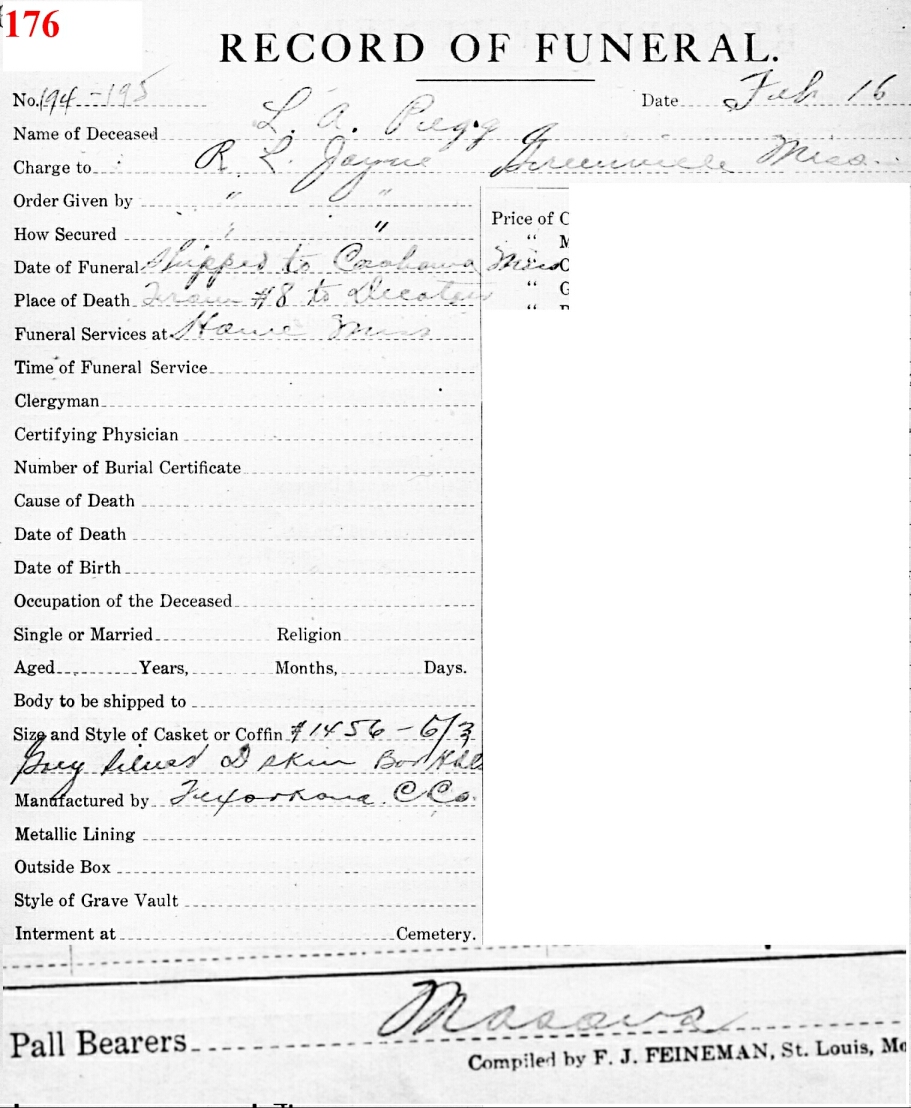 176
RECORD OF FUNERAL.
No. 194-195 Date Feb 16
Name of Deceased L. A. Pegg
Charge to R L Jayne Greenville Miss.
Order Given by " "
How Secured " "
Price of C
" M
Date of Funeral shipped to Coahoma Miss
" C
Place of Death Train #8 to Decatur
" G
"
Funeral Services at Miss
Time of Funeral Service
Clergyman
Certifying Physician
Number of Burial Certificate
Cause of Death
Date of Death
Date of Birth
Occupation of the Deceased
Single or Married Religion
Aged Years, Months, Days.
Body to be shipped to
Size and Style of Casket or Coffin #1456 - 6/3
Grey Silver D skin
Manufactured by Texarkana C Co.
Metallic Lining
Outside Box
Style of Grave Vault
Interment at Cemetery.
Pall Bearers Masons
Compiled by F. J. FEINEMAN, St. Louis, Mo